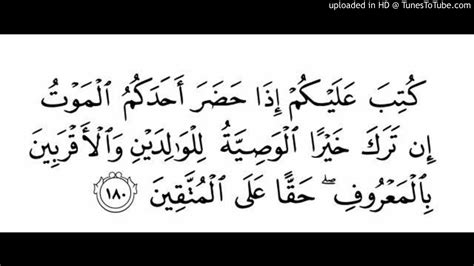 uploaded in HD @ TunesToTube.com
كُتِبَ عَلَيْكُمْ إِذَا حَضَرَ أَحَدَكُمُ ٱلْمَوْتُ
إِن تَرَكَ خَيْرًا ٱلْوَصِيَّةُ لِلْوَٰلِدَيْنِ وَٱلْأَقْرَبِينَ
بِٱلْمَعْرُوفِ ۖ حَقًّا عَلَى ٱلْمُتَّقِينَ ١٨٠